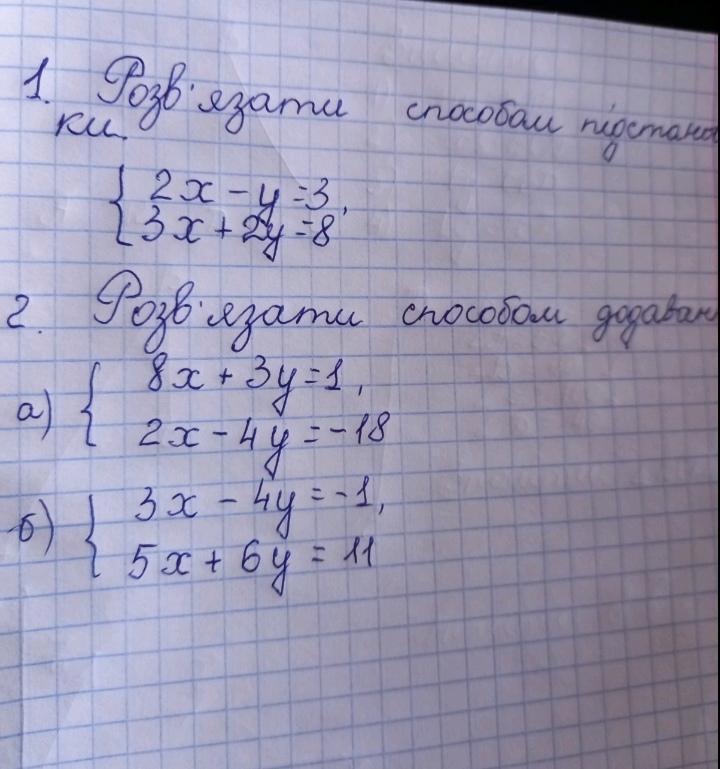 1. Розв'язати способом підстанов
ки.
{ 2x - y = 3,
3x + 2y = 8
2. Розв'язати способом додаван
а) { 8x + 3y = 1,
2x - 4y = -18
б) { 3x - 4y = -1,
5x + 6y = 11